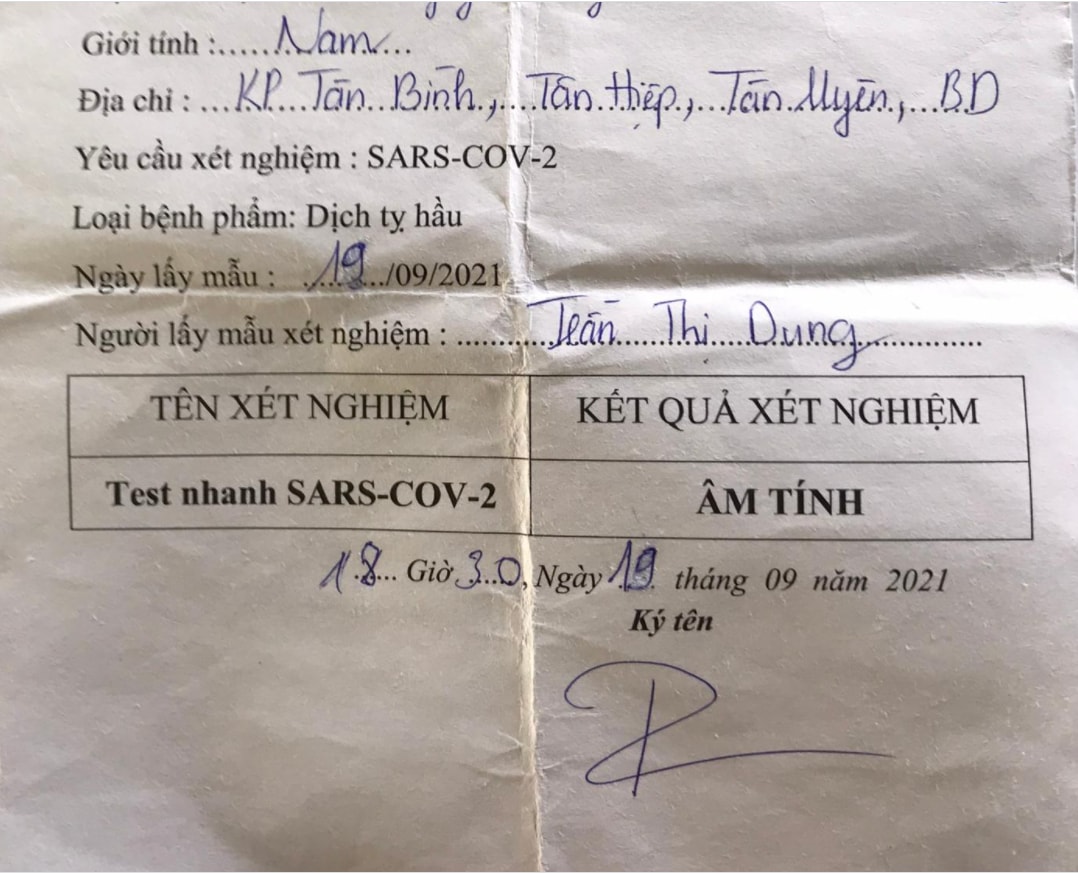 Giới tính :.....Nam...
Địa chỉ : ...KP...Tân..Bình.,....Tân.Hiệp.,...Tân.Uyên.,...B.D
Yêu cầu xét nghiệm : SARS-COV-2
Loại bệnh phẩm: Dịch tỵ hầu
Ngày lấy mẫu : ....19.../09/2021
Người lấy mẫu xét nghiệm : ............Trần......Thị.....Dung.................
TÊN XÉT NGHIỆM KẾT QUẢ XÉT NGHIỆM
Test nhanh SARS-COV-2 ÂM TÍNH
18... Giờ 30, Ngày 19 tháng 09 năm 2021
Ký tên